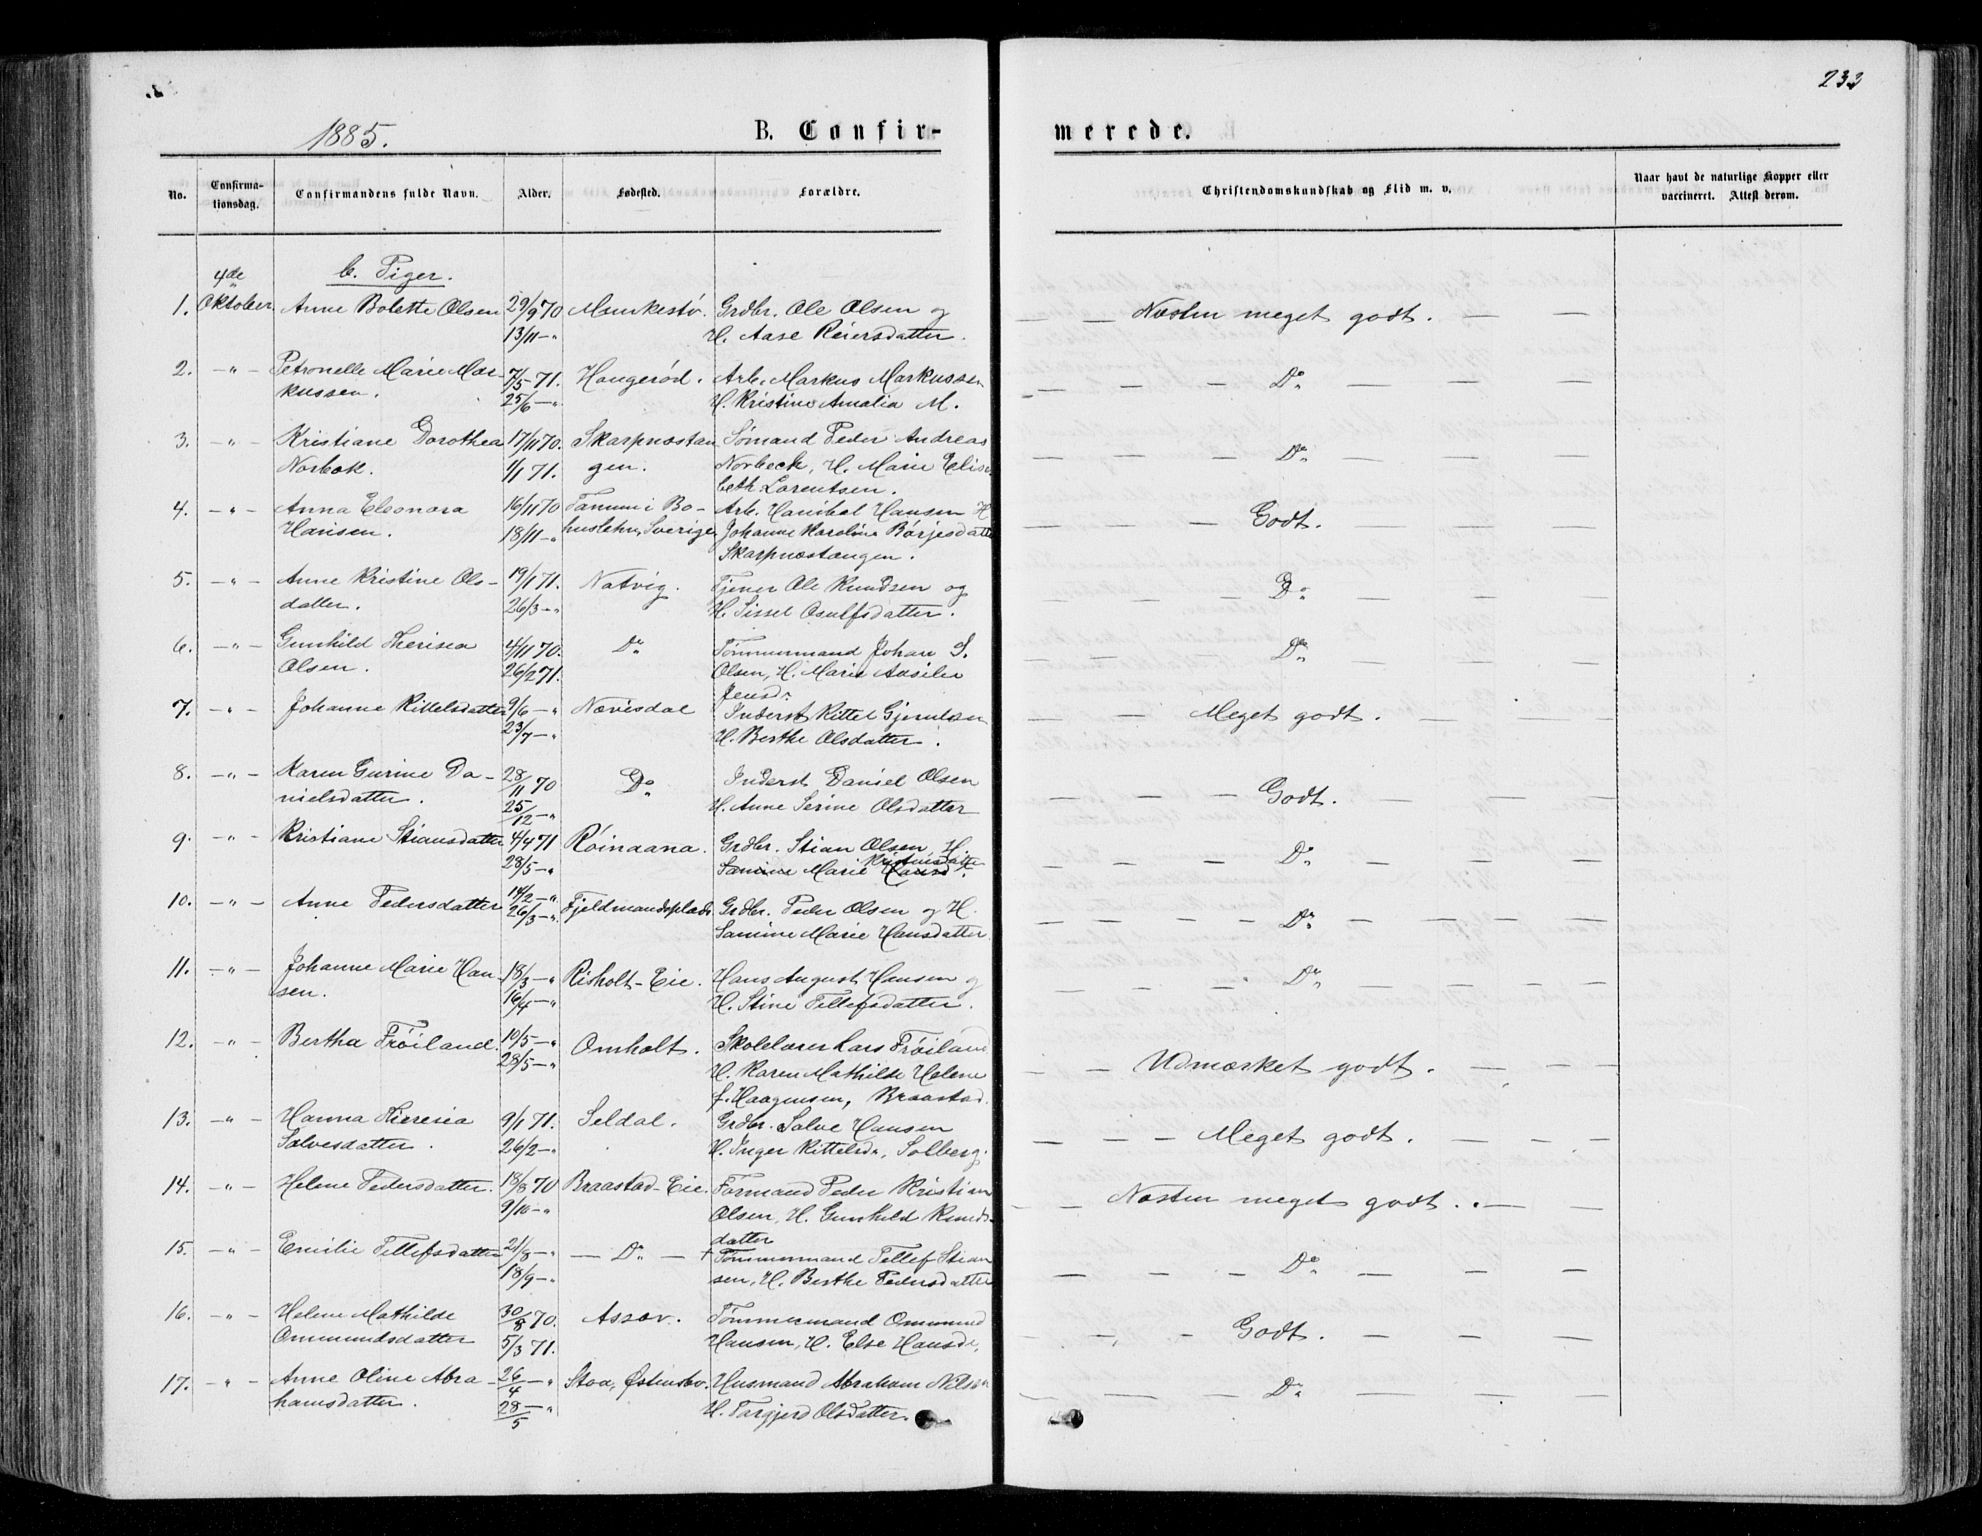 233
1885.
B. Confir-
merede.
No.
Confirma-
tionsdag.
Confirmandens fulde Navn.
Alder.
Fødested.
Forældre.
Christendomskundskab og Flid m. v.
Naar havt de naturlige Kopper eller
vaccineret. Attest derom.
b. Piger.
4de
1. Oktober Anne Bolette Olsen 29/9 70 Munkestø. Grdbr. Ole Olsen og — — Næsten meget godt. — —
13/11 — " H. Aase Reiersdatter.
2. — " — Petronelle Marie Mar- 7/5 — 71. Haugerød. Arb. Markus Markussen — — — Do — — —
kussen. 25/6 — " H. Kristine Amalia M.
3. — " — Kristiane Dorothea 17/11 70. Skarpnæstan Sømand Peder Andreas — — — Do — — —
Norbek. 1/1 71. gen. Norbeck, H. Marie Elisa
beth Lorentsen.
4. — " — Anna Eleonora 16/11 70 Tanum i Bo- Arb. Hanibal Hansen H — — — Godt. — — —
Hansen. 18/11 — " huslehn, Sverige Johanne Karoline Børjesdatter
Skarpnæstangen.
5. — " — Anne Kristine Ols- 19/1 71. Natvig. Tjener Ole Knudsen og — — — Do — — —
datter. 26/3 — " H. Sissel Osulfsdatter.
6. — " — Gunhild Therisea 4/11 70. Do Tømmermand Johan S. — — — Do — — —
Olsen. 26/2 71. Olsen, H. Marie Axilie
Jensd.
7. — " — Johanne Kittelsdatter 9/6 — " Nævisdal Inderst Kittel Gjerulsen — — Meget godt. — — —
23/7 — " H. Berthe Olsdatter.
8. — " — Karen Gurine Da- 28/11 70 Do Inderst Daniel Olsen — — — Godt. — — —
nielsdatter. 25/12 — " H. Anne Serine Olsdatter
9. — " — Kristiane Stiansdatter 4/4 71 Røindana. Grdbr. Stian Olsen, H. — — — Do — — —
28/5 — " Samine Marie Hansd. Kristinsdatter
10. — " — Anne Pedersdatter 14/2 — " Fjeldmandsplads Grdbr. Peder Olsen og H. — — — Do — — —
26/3 — " Samine Marie Hansdatter.
11. — " — Johanne Marie Han 18/3 — " Risholt-Eie. Hans August Hansen og — — — Do — — —
sen. 16/4 — " H. Stine Tellefsdatter.
12. — " — Bertha Frøiland. 10/5 — " Omholt. Skolelærer Lars Frøiland — — Udmærket godt. — — —
28/5 — " H. Karen Mathilde Helene
f. Haagensen, Braastad.
13. — " — Hanna Theresia 9/1 71. Seldal. Grdbr. Salve Hansen — — — Meget godt. — — —
Salvesdatter. 26/2 — " H. Inger Kittelsd., Solberg.
14. — " — Helene Pedersdatter. 18/8 70 Braastad-Eie. Formand Peder Kristian — — Næsten meget godt. — —
9/10 — " Olsen, H. Gunhild Knuds-
datter
15. — " — Emilie Tellefsdatter 21/8 — " — Do — + Tømmermand Tellef Stian — — — Do — — —
18/9 — " sen, H. Berthe Pedersdatter
16. — " — Helene Mathilde 30/8 70. Assæv. Tømmermand Ommund — — — Godt. — — —
Ommundsdatter 5/3 71. Hansen, H. Else Hansd.
17. — " — Anne Oline Abra- 26/4 — " Stoa, Østensbo. Husmand Abraham Nilsen — — — Do — — —
hamsdatter. 28/5 — " H. Torgjerd Olsdatter.